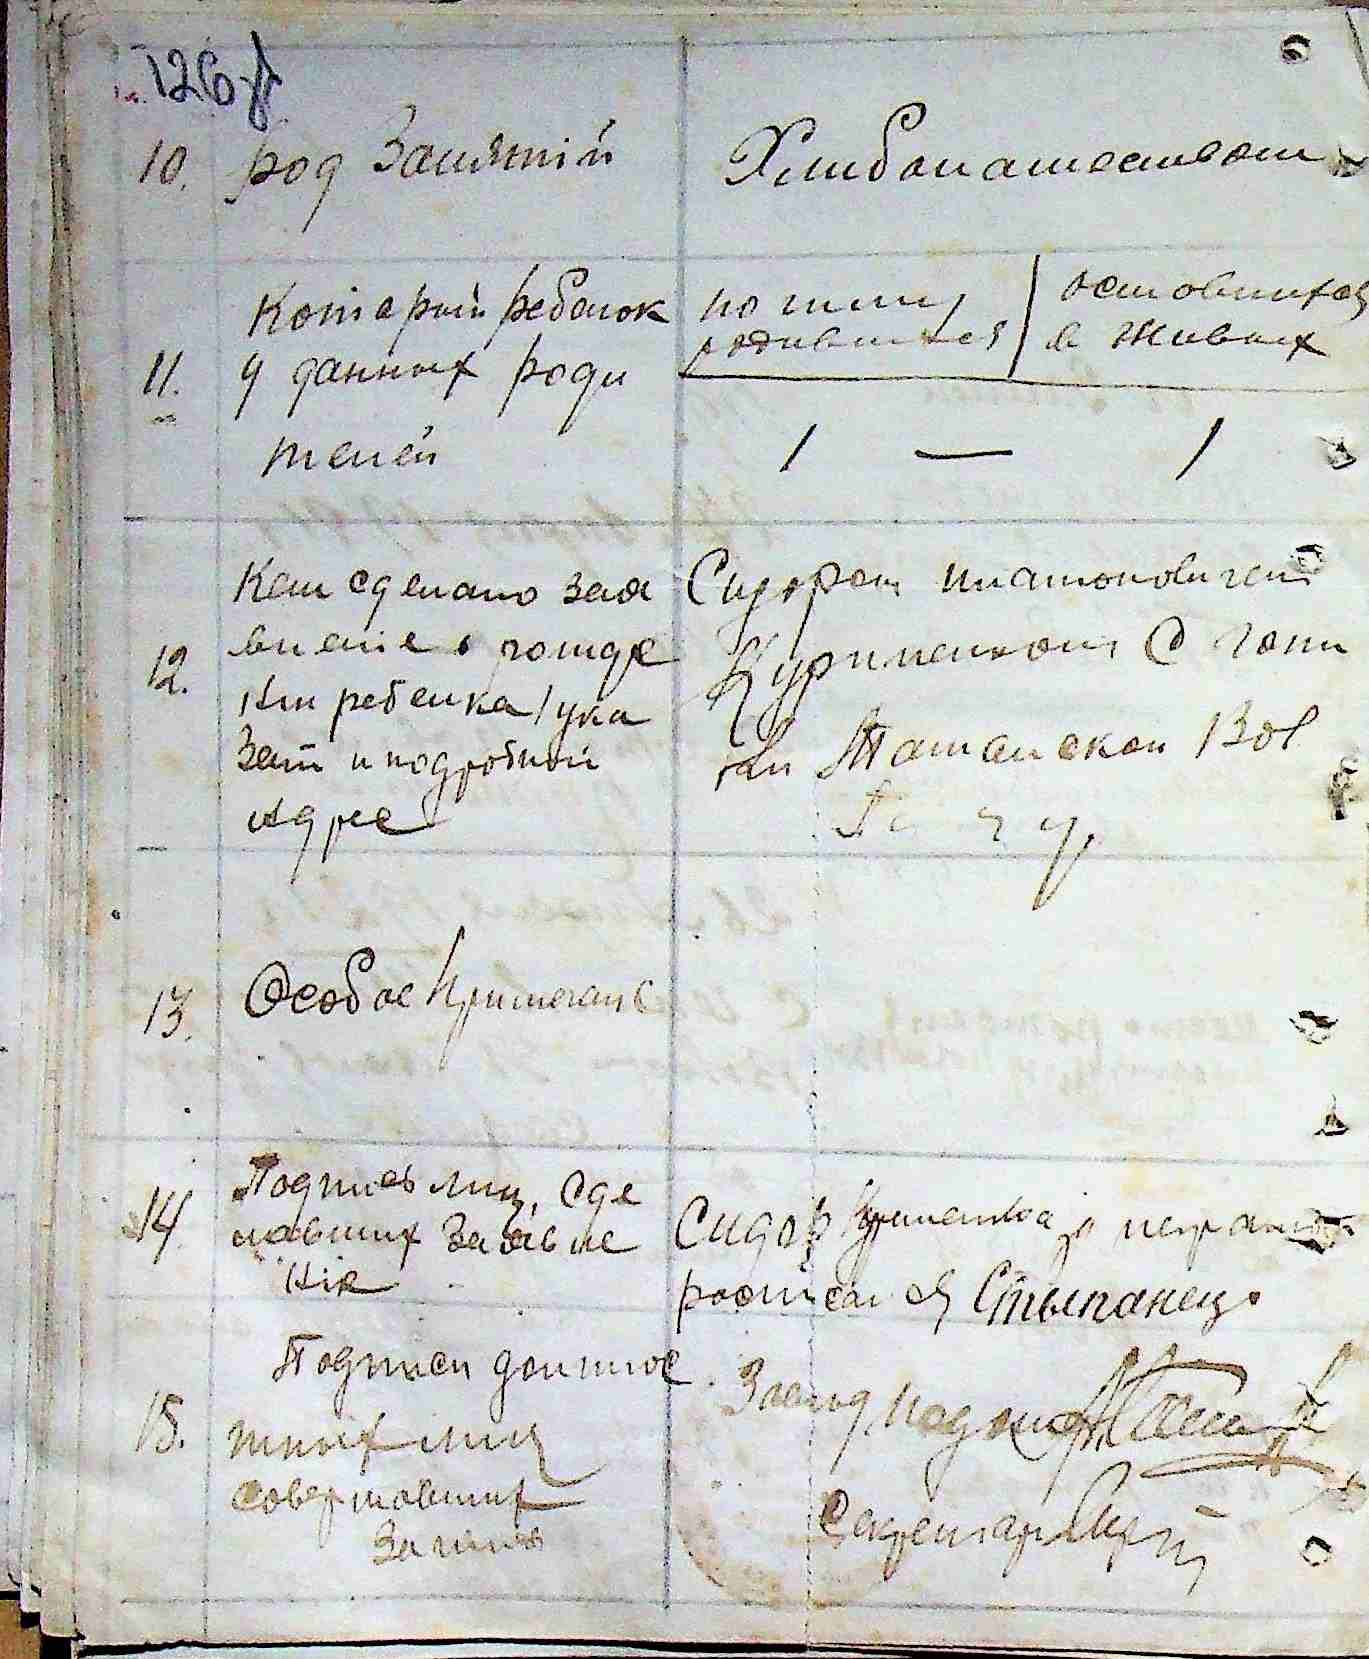 126
10. род Занятій
Хлибопашеством
Который ребенок
11. у данных роди
телей
по счету
родившихся
оставшихся
в живых
1 — 1
Кем сделано заяв
вление о рожде
12. нии ребенка / ука
Зать и подробный
Адрес
Сидором Платоновичем
Куриленком С
Ташанской Вол
13. Особое Примечание
14. Подпись лиц, сде
лавших Заявле
нія
Сидор Куриленко а неграмот
росписался Стыпанець
Подписи должнос
15. тных лиц
совершавших
Запись
Завид подотд
Секретарь